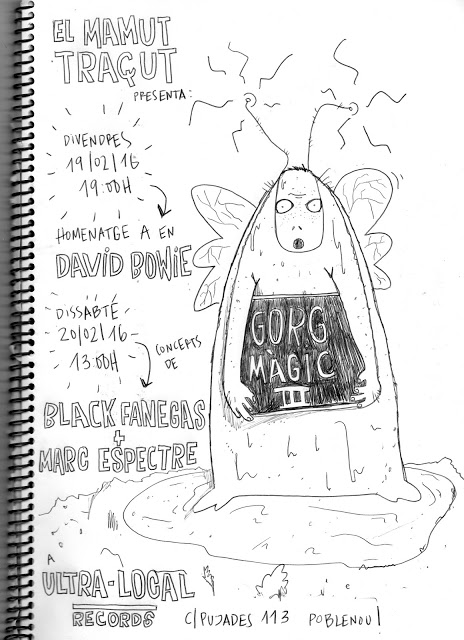 EL MAMUT
TRAÇUT
PRESENTA:
DIVENDRES
19/02/16
19:00H
HOMENATGE A EN
DAVID BOWIE
DISSABTÉ
20/02/16
13:00H
CONCERTS
DE
BLACK FANEGAS
+
MARC ESPECTRE
GORG
MÀGIC
III
A
ULTRA-LOCAL
RECORDS
C/PUJADES 113 POBLENOU